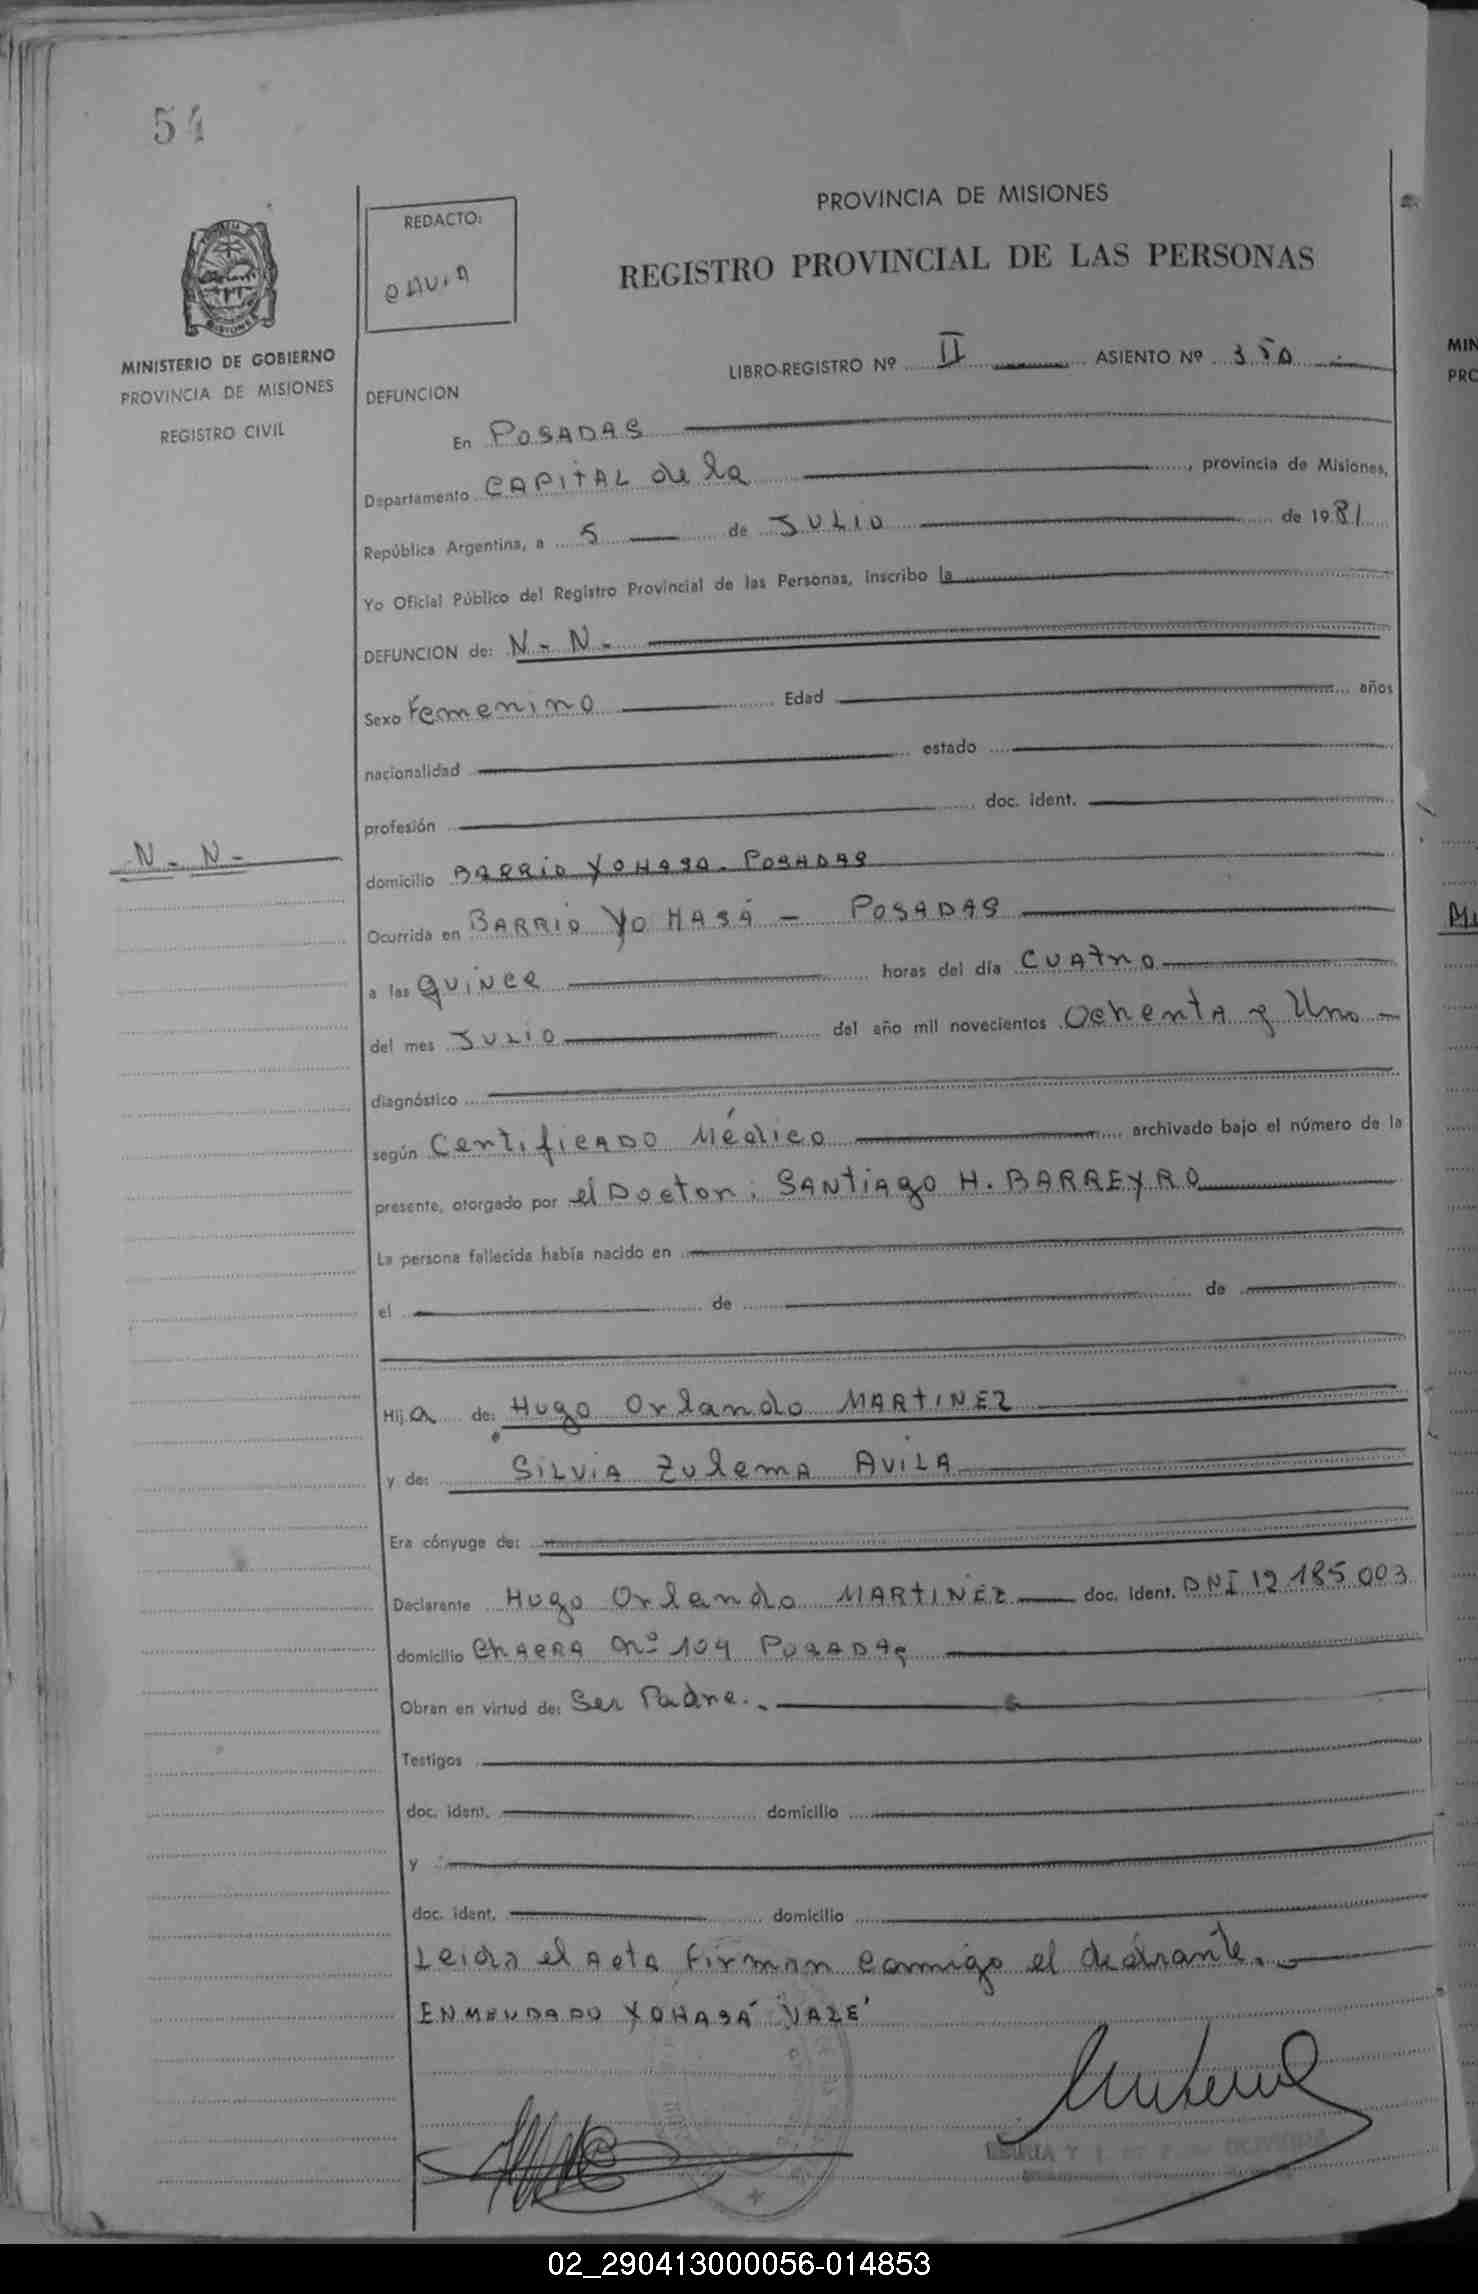 54
REDACTO:
CAVIA
PROVINCIA DE MISIONES
REGISTRO PROVINCIAL DE LAS PERSONAS
MINISTERIO DE GOBIERNO
PROVINCIA DE MISIONES
REGISTRO CIVIL
LIBRO-REGISTRO Nº II ASIENTO Nº 350
DEFUNCION
En POSADAS
Departamento CAPITAL de la , provincia de Misiones,
República Argentina, a 5 de JULIO de 1981
Yo Oficial Público del Registro Provincial de las Personas, inscribo la
DEFUNCION de: N - N -
Sexo Femenino Edad años
nacionalidad estado
profesión doc. ident.
N - N -
domicilio BARRIO YOHASA - POSADAS
Ocurrida en BARRIO YOHASÁ - POSADAS
a las QUINCE horas del día CUATRO
del mes JULIO del año mil novecientos OchentA y Uno -
diagnóstico
según CertificADO Médico archivado bajo el número de la
presente, otorgado por el Doctor: SANTIAGO H. BARREYRO
La persona fallecida había nacido en
el de de
Hija de: Hugo Orlando MARTINEZ
y de: SILVIA ZulemA AVILA
Era cónyuge de:
Declarante Hugo Orlando MARTINEZ doc. ident. DNI 12.185.003
domicilio ChACRA Nº 104 POSADAS
Obran en virtud de: Ser Padre.
Testigos
doc. ident. domicilio
y
doc. ident. domicilio
Leida el Acta firman conmigo el declarante.
ENMENDADO YOHASÁ VALE
MIN
PRO
02_290413000056-014853